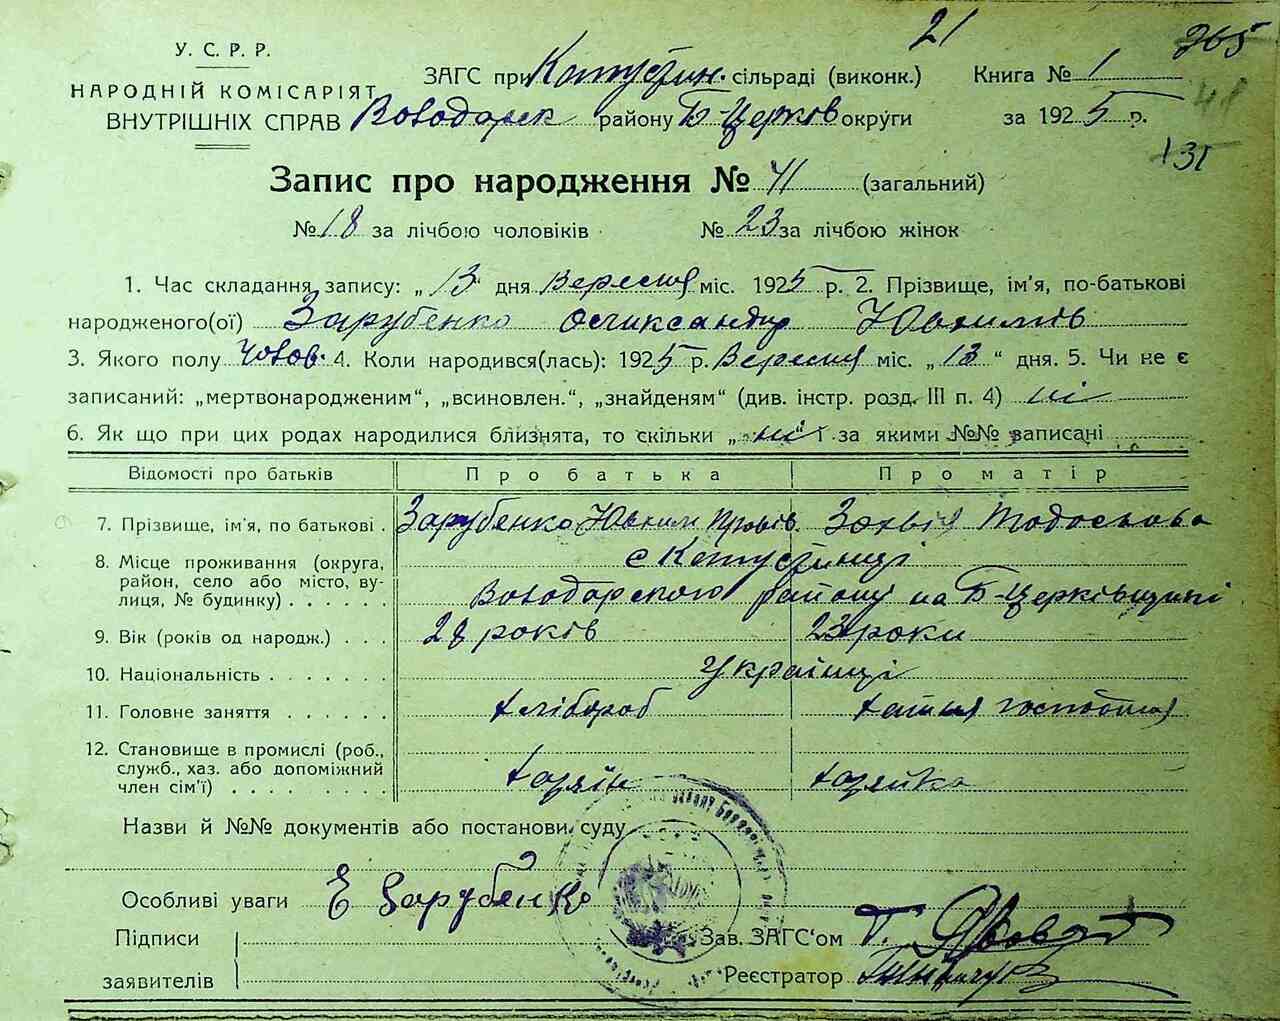 21
265
У. С. Р. Р.
НАРОДНІЙ КОМІСАРІЯТ
ВНУТРІШНІХ СПРАВ
ЗАГС при сільраді (виконк.) Книга № 1
Володарск району Б-Церків округи за 1925 р.
131
Запис про народження № 41 (загальний)
№ 18 за лічбою чоловіків № 23 за лічбою жінок
1. Час складання запису: „13" дня Вересня міс. 1925 р. 2. Прізвище, ім'я, по-батькові
народженого(ої) Зарубенко Олександр Юхимів
3. Якого полу Чолов. 4. Коли народився(лась): 1925 р. Вересня міс. „13" дня. 5. Чи не є
записаний: „мертвонародженим", „всиновлен.", „знайденям" (див. інстр. розд. III п. 4) ні
6. Як що при цих родах народилися близнята, то скільки „ні" і за якими №№ записані
Відомості про батьків Про батька Про матір
7. Прізвище, ім'я, по батькові . Зарубенко Юхим Тодоськова
8. Місце проживання (округа,
район, село або місто, ву-
лиця, № будинку) . . . . . .
Володарського району на Б-Церківщині
9. Вік (років од народж.) . . . 28 років 23 роки
10. Національність . . . . . . . Українці
11. Головне заняття . . . . . . хлібороб хатня господиня
12. Становище в промислі (роб.,
служб., хаз. або допоміжний
член сім'ї) . . . . . . . . . хазяїн хазяйка
Назви й №№ документів або постанови суду
Особливі уваги Е Зарубенко
Підписи
заявителів
Зав. ЗАГС'ом
Реєстратор